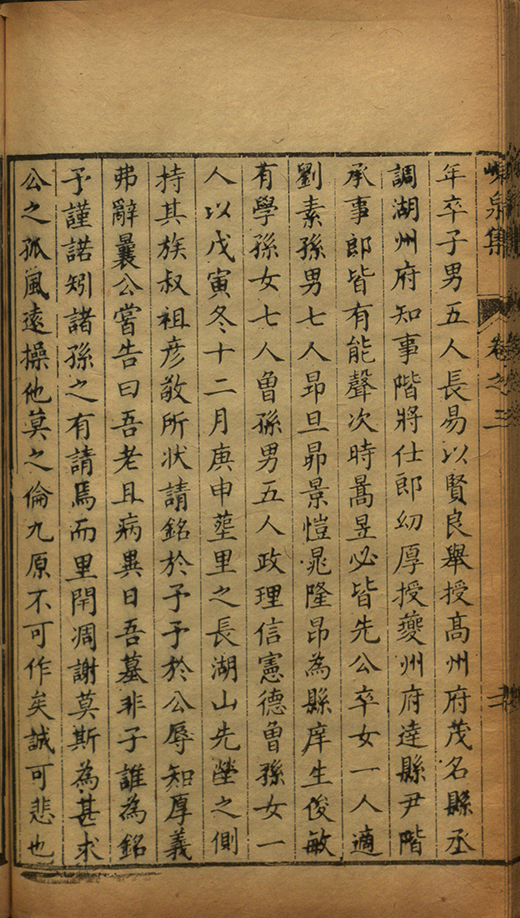 泉集 卷之三
年卒子男五人長易以賢良舉授髙州府茂名縣丞
調湖州府知事階將仕郎幼厚授夔州府達縣尹階
承事郎皆有能聲次時暠昱必皆先公卒女一人適
劉素孫男七人昂旦昴景愷晁隆昂為縣庠生俊敏
有學孫女七人魯孫男五人政理信憲德魯孫女一
人以戊寅冬十二月庚申塟里之長湖山先塋之側
持其族叔祖彦敬所状請銘於予予於公辱知厚義
弗辭曩公嘗告曰吾老且病異日吾墓非子誰為銘
予謹諾矧諸孫之有請焉而里閈凋謝莫斯為甚求
公之孤風遠操他莫之倫九原不可作矣誠可悲也